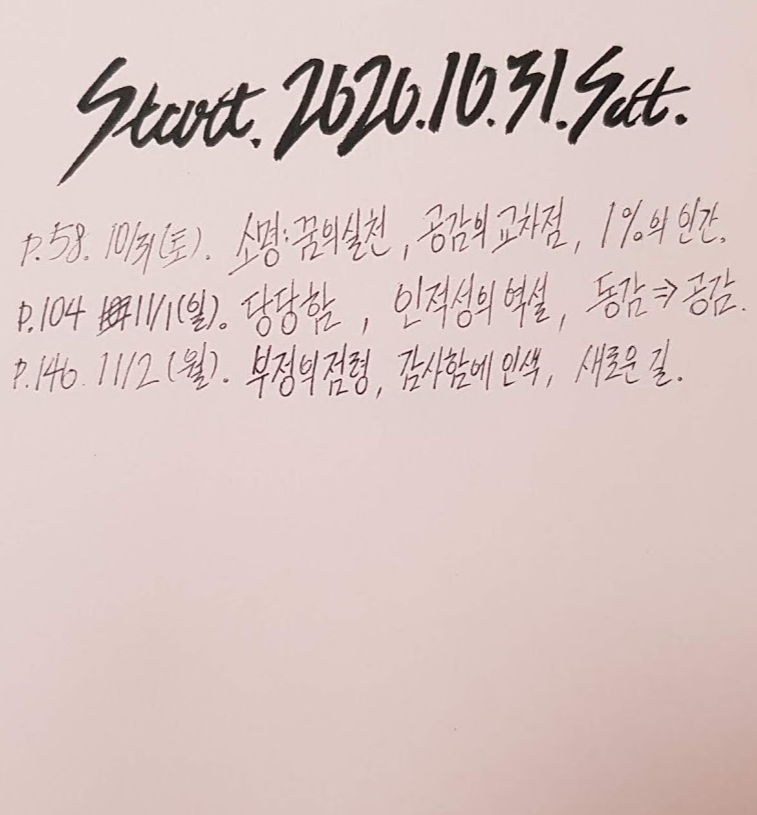 Start. 2020.10.31. Sat.
p.58. 10/31(토). 소명:꿈의실천, 공감의 교차점, 1%의 인간.
p.104 11/1(일). 당당함, 인적성의 역설, 동감⇒공감.
p.146. 11/2(월). 부정의점령, 감사함에 인색, 새로운 길.